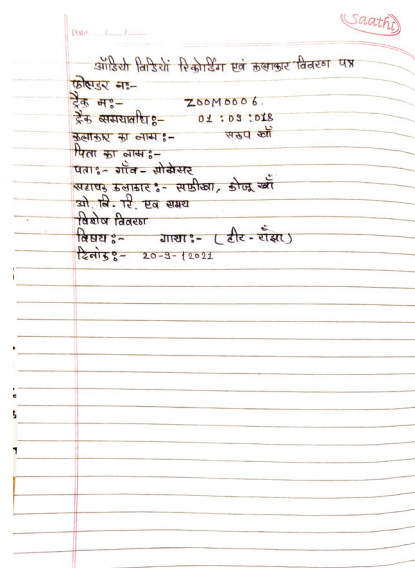 Saathi
Date / /
ऑडियो विडियों रिकोर्डिंग एवं कलाकार विवरण पत्र
फोल्डर नः-
ट्रैक नः- ZOOM0006.
ट्रैक समयावधिः- 01 : 03 : 018
कलाकार का नामः- सरूप खाँ
पिता का नामः-
पताः- गाँव-
सहायक कलाकारः- सफीखा, कोजू खाँ
ओ. वि. रि. एव समय
विशेष विवरण
विषयः- गाथाः- ( हीर - राँझा )
दिनांकः- 20-9-12021